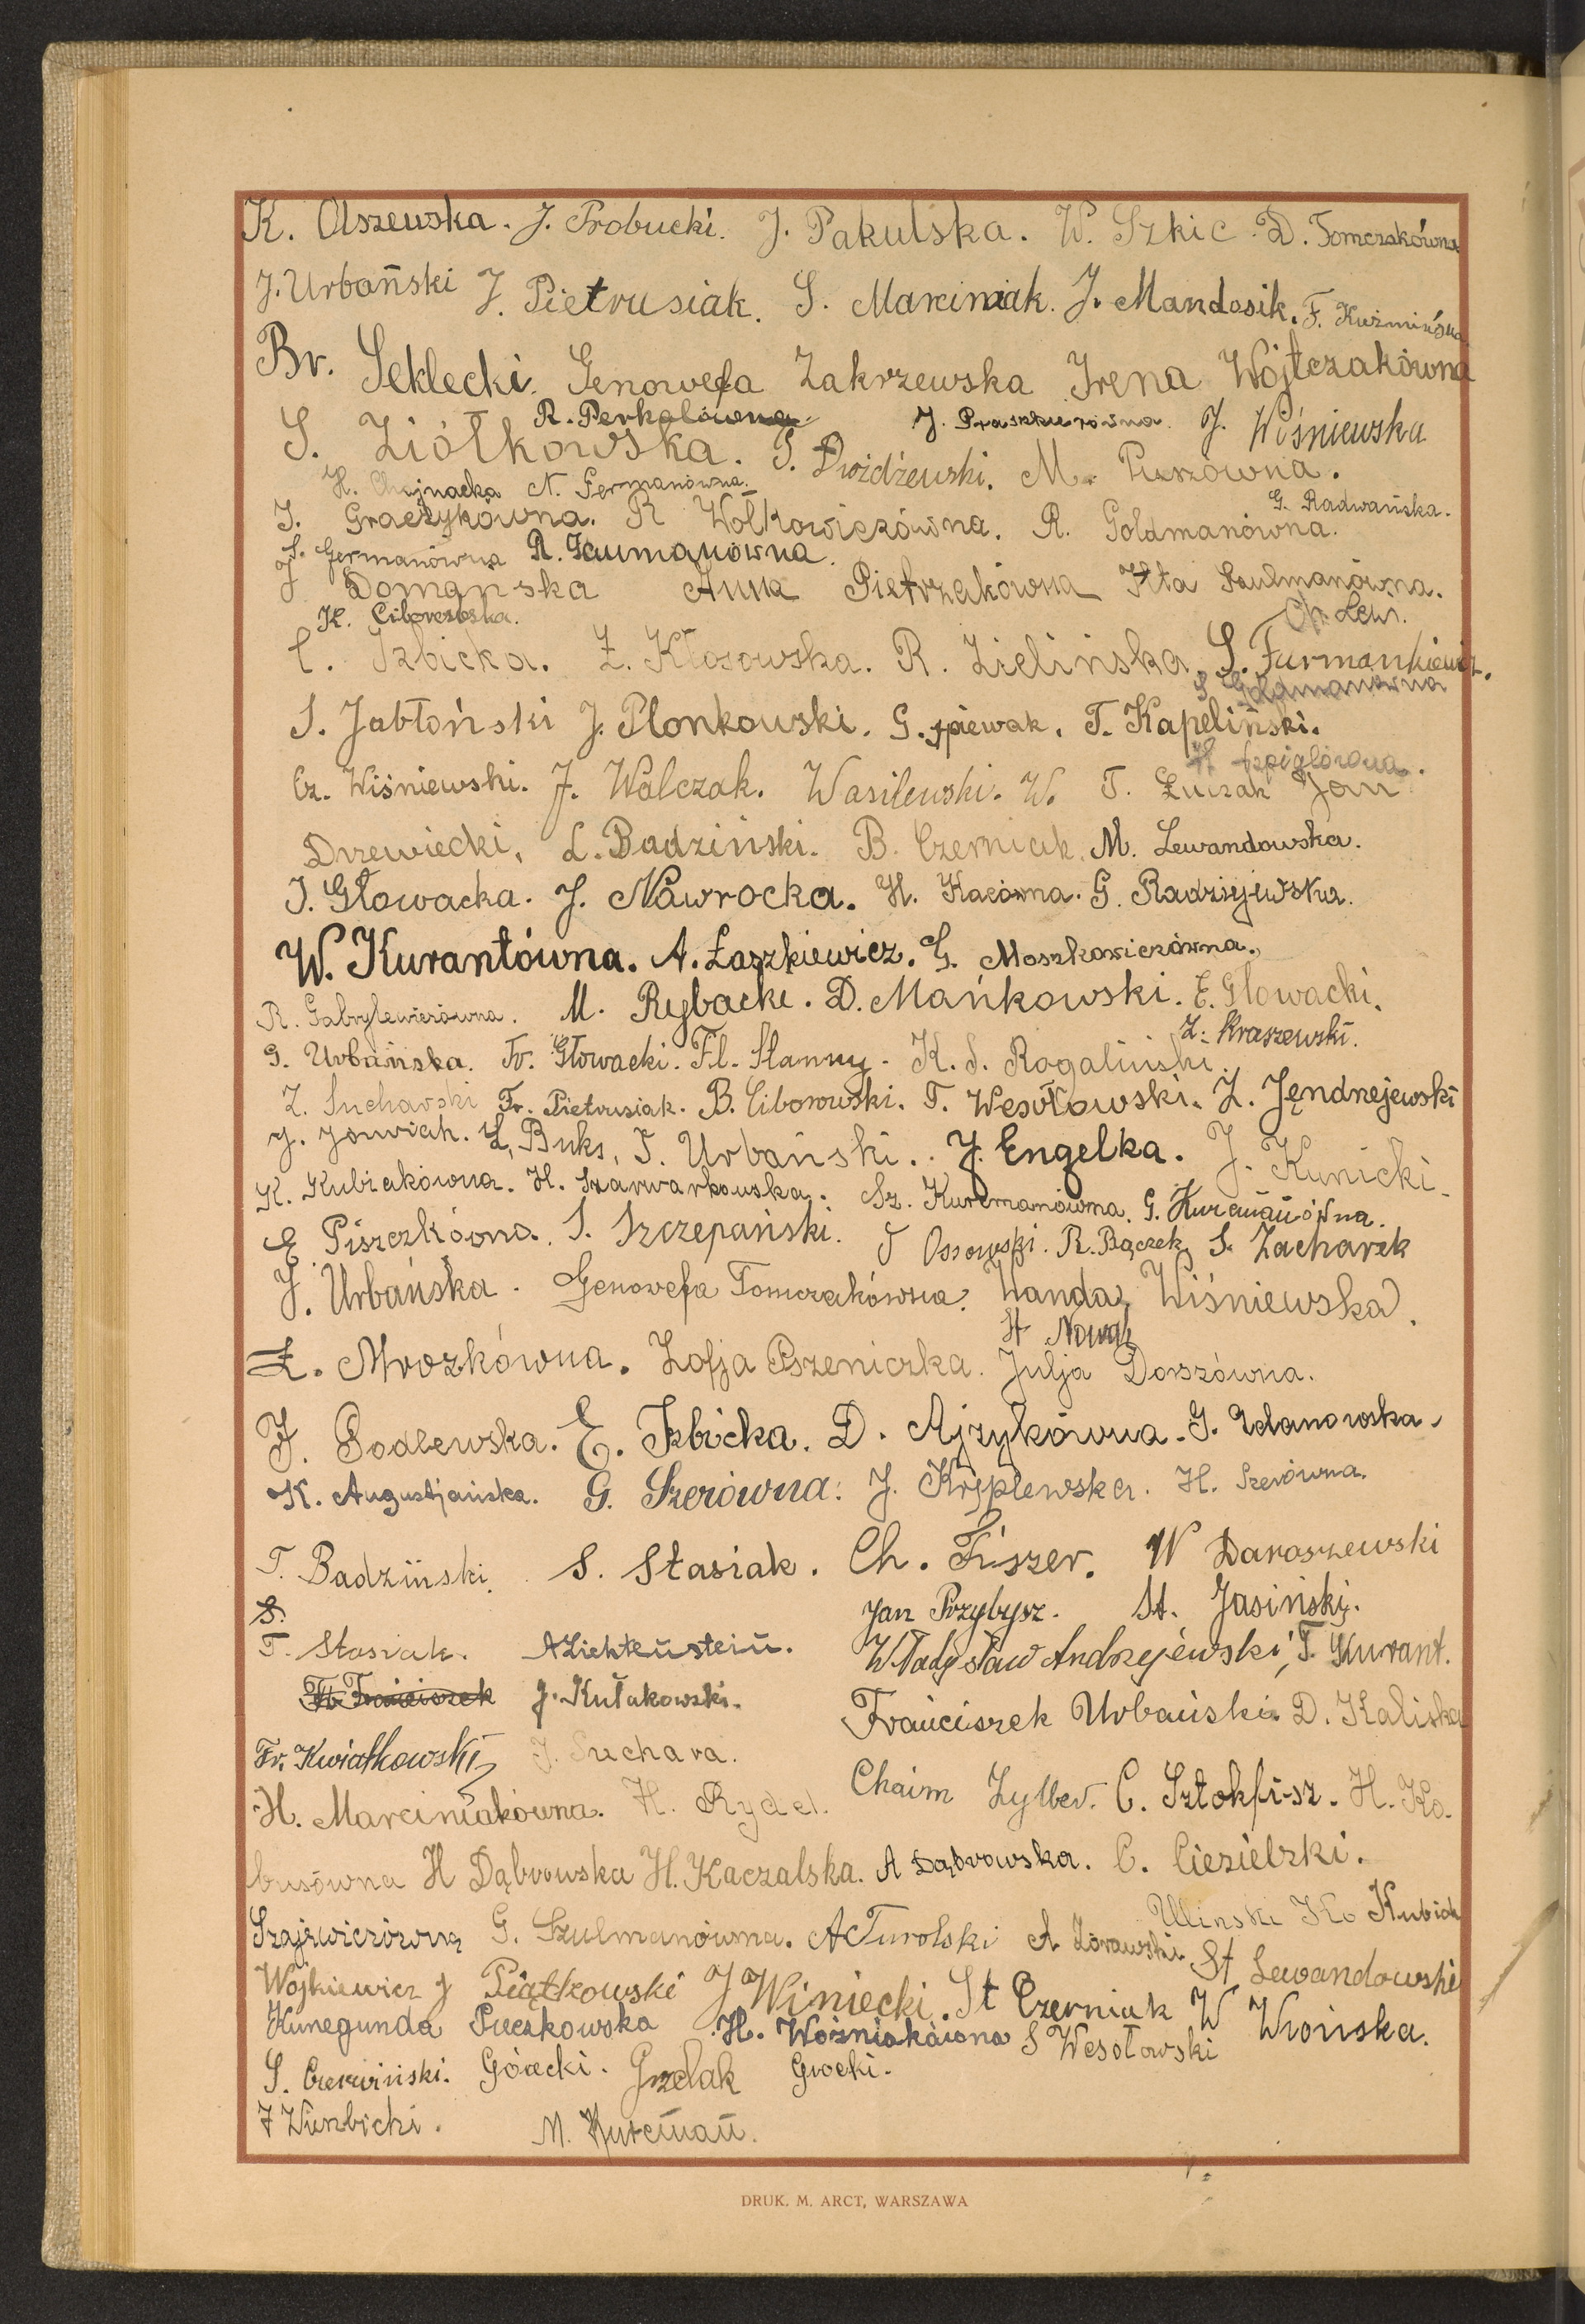 K. Olszewska. J. Probucki. J. Pakulska. W. Szkic. D. Tomczakówna
J. Urbański J. Pietrusiak. S. Marciniak. J. Mandosik. F. Kuźmińska
Br. Seklecki. Genowefa Zakrzewska Irena Wojtczakówna
R. Perkalówna J. Praszkierówna. J. Wiśniewska
S. Ziółkowska. S. Dwidżewski. M. Puszówna.
H. Chojnacka N. Germanówna. G. Radwańska.
J. Graczykówna. R Wołkowiczówna. R. Goldmanówna.
S. Germanówna R. Szumanówna.
J Domanska Anna Pietrzakówna Szulmanówna.
K. Ciborowska. Ch. Lew.
C. Izbicka. Z. Kłosowska. R. Zielińska. S. Furmankiewicz.
S. Goldmanówna
S. Jabłoński J. Plonkowski. G. Spiewak. T. Kapeliński.
Cz. Wiśniewski. J. Walczak. Wasilewski. W. T. Łuczak Jan
Drzewiecki. L. Badziński. B. Czerniak. M. Lewandowska.
J. Głowacka. J. Nawrocka. H. Kacówna. G. Radziejewska.
W. Kurantówna. A. Łaszkiewicz. G. Moszkowiczówna.
R. Gabrylewiczówna. M. Rybacki. D. Mańkowski. E. Głowacki.
Z. Kraszewski.
G. Urbańska. Fr. Głowacki. Fl. Slanny. K. S. Rogaliński.
Z. Sucharski Fr. Pietrusiak. B. Ciborowski. T. Wesołowski. Z. Jendrzejewski
J. Jouwiak. L. Buks. T. Urbański. J. Engelka. J. Kunicki.
K. Kubiakówna. H. Szarwarkowska. Sz. Kurcmanówna. G. Kurcmanówna.
E Piszczkówna. S. Szczepański. T Ossowski. R. Bączek S. Zacharek
J. Urbańska. Genovefa Tomczakówna. Wanda Wiśniewska.
St Nowak
Z. Mrozkówna. Zofja Pszeniczka. Julja Dorszówna.
J. Podlewska. E. Izbicka. D. Ajzykówna. G. Zdanowska.
K. Augustjańska. G. Szerówna. J. Kreplewska. H. Szerówna.
T. Badziński. S. Stasiak. Ch. Fiszer. W Daroszewski
S. Jan Przybysz. St. Jasiński.
T. Stasiak. A Liehtenstein. Władysław Andrzejewski, T. Kurant.
Fr. Franciszek J. Kułakowski. Franciszek Urbański. D. Kaliska
Fr. Kwiatkowski J. Suchara.
H. Marciniakówna. H. Rydel. Chaim Zylber. C. Sztokfisz. H. Ko-
busówna H Dąbrowska H. Kaczalska. A Dąbrowska. C. Ciesielski.
Ulinski Ko Kubiak
Szajewiczówna G. Szulmanówna. A Turolski A Zórawski. St Lewandowski
Wojkiewicz J Piątkowski J Winiecki. St Czerniak W Wrońska.
Kunegunda Puczkowska H. Woźniakówna S Wesołowski
S. Czerwiński. Górecki. Grzelak Grocki.
M. Kurcman.
DRUK. M. ARCT, WARSZAWA